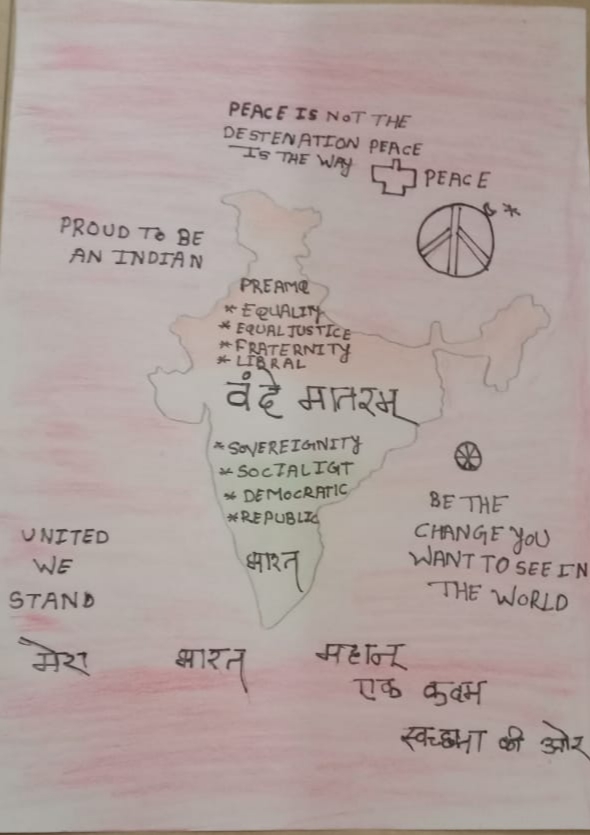 PEACE IS NOT THE
DESTENATION PEACE
IS THE WAY
PEACE
PROUD TO BE
AN INDIAN
PREAMQ
* EQUALITY
* EQUAL JUSTICE
* FRATERNITY
* LIBRAL
वंदे मातरम्
* SOVEREIGNITY
* SOCIALIGT
* DEMOCRATIC
* REPUBLIC
भारत
BE THE
CHANGE YOU
WANT TO SEE IN
THE WORLD
UNITED
WE
STAND
मेरा भारत महान्
एक कदम
की ओर